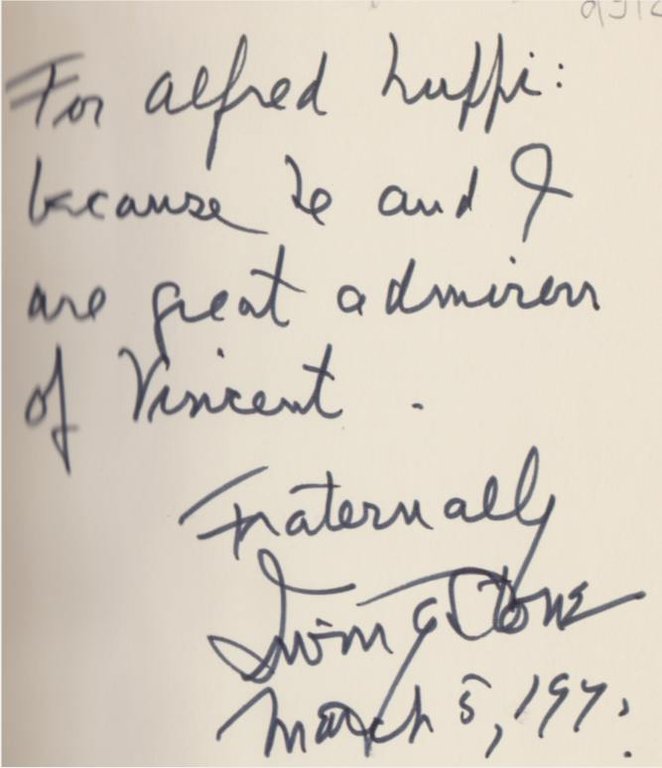 For Alfred Luppi:
because he and I
are great admirers
of Vincent.
Fraternally
Irving Stone
March 5, 197